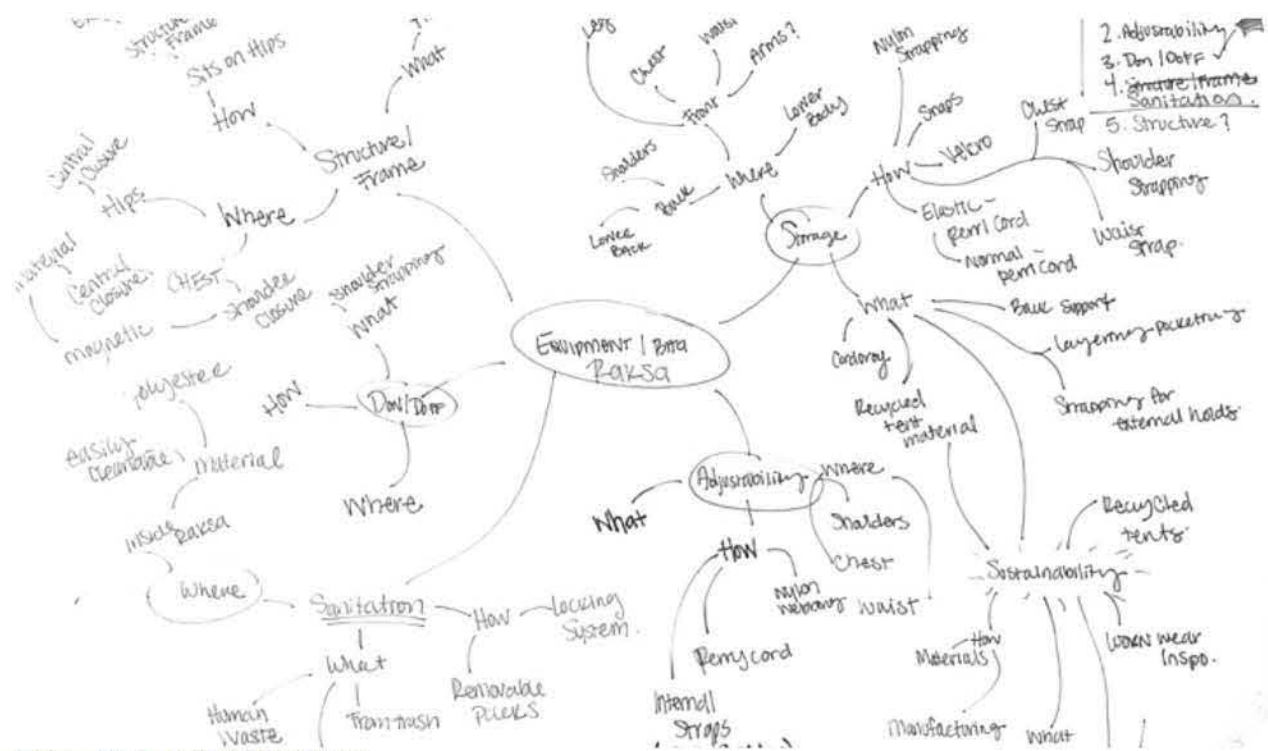 Structure
Frame
Sits on Hips
How
What
Structure/
Frame
Central
Closure
Hips
Where
material
Central
Closure
CHEST
Shoulder
Closure
magnetic
Shoulder
Strapping
What
polyester
How
Don/Doff
easily
cleanable
material
Where
inside
Raksa
Where
Sanitation
How
Locking
System.
What
Removable
Human
Waste
From trash
EQUIPMENT/
RAKSA
Leg
Chest
Waist
Arms?
Front
Lower
Body
Shoulders
Back
Where
Lower
Back
Storage
Nylon
Strapping
Snaps
Velcro
How
Chest
Strap
Shoulder
Strapping
Waist
Strap.
Elastic -
Cord
Normal -
Cord
What
Back Support
Layering pocketing
Strapping for
external holds.
Recycled
tent
material
2. Adjustability
3. Don/Doff ✓
4. Structure/Frame
Sanitation.
5. Structure?
Adjustability
Where
What
Shoulders
Chest
Waist
How
Nylon
Webbing
Internal
Straps
Sustainability
Recycled
tents
WORN wear
Inspo.
How
Materials
Manufacturing
What